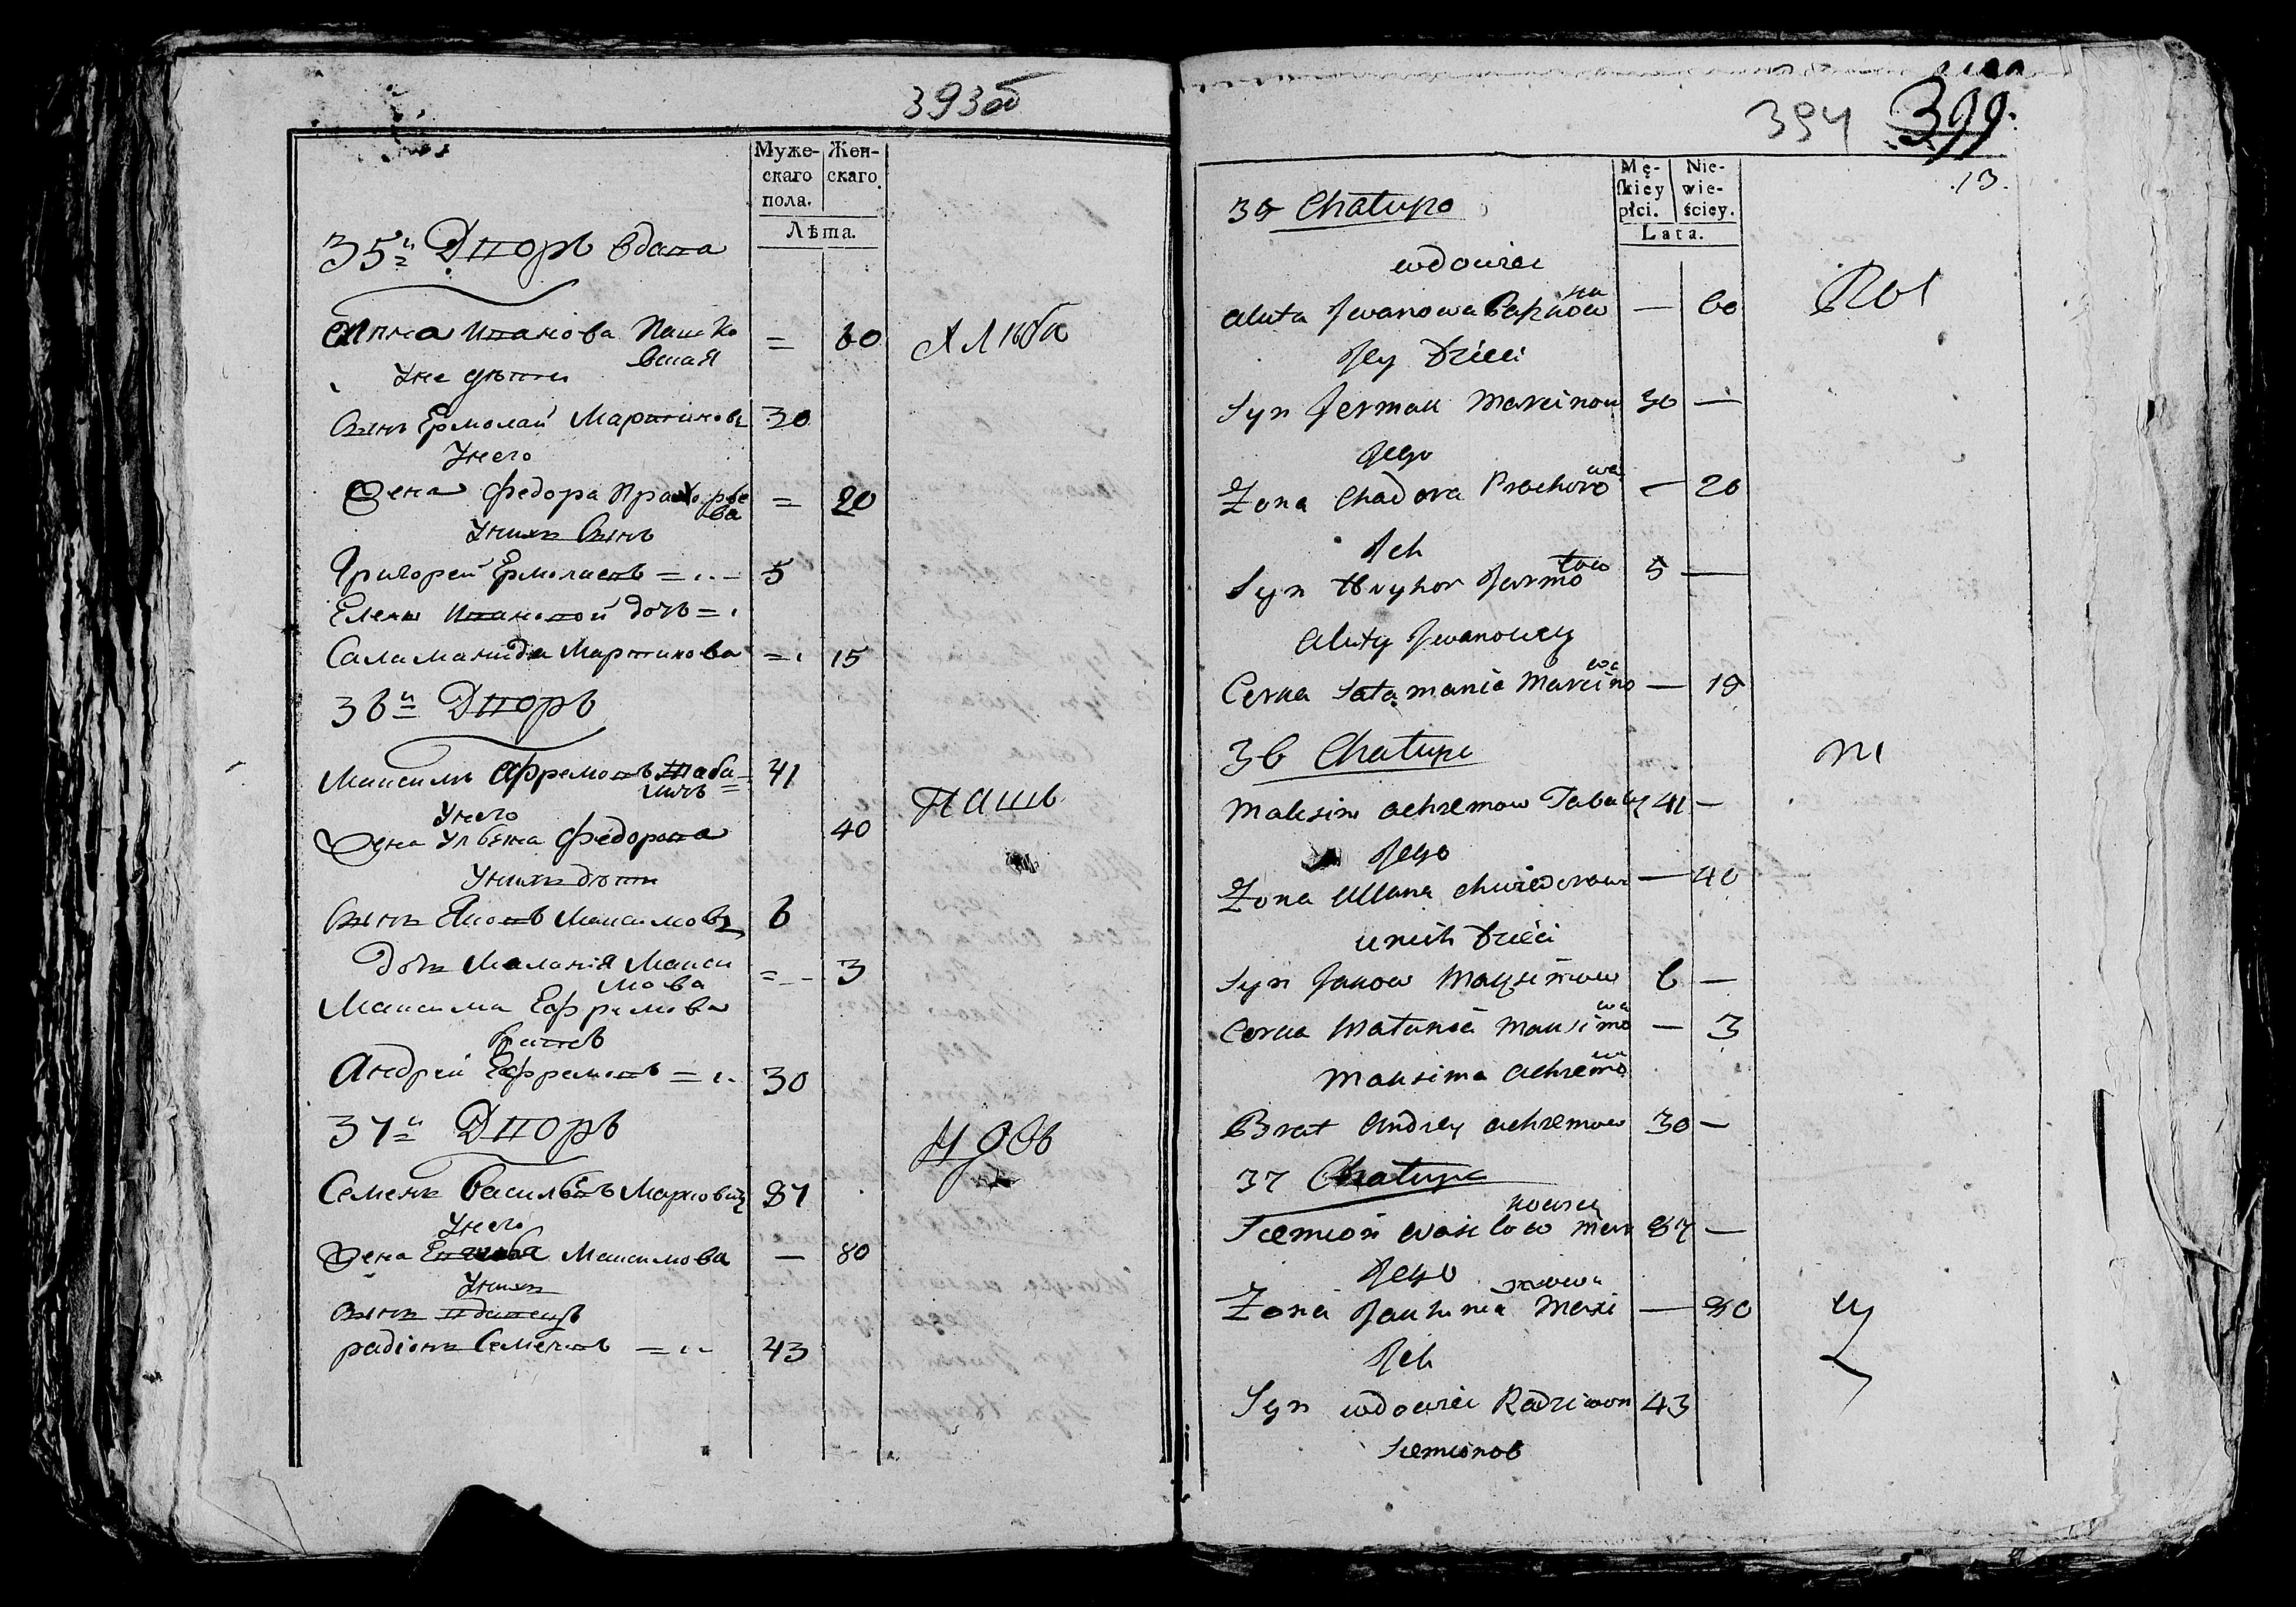 393об
Муже- Жен-
скаго скаго
пола.
Лѣта.
35й Дворъ вдова
Анна Иванова Пашко
вская = 60
У нее дѣти
Сынъ Ермолай Мартиновъ 30
У него
Жена Федора Прахорье
ва = 20
У нихъ Сынъ
Григорей Ермолаевъ = 5
Елены Ивановой дочь =
Саламанида Мартинова = 15
36й Дворъ
Максимъ Афремовъ Таба
41
У него
Жена Ульяна Федорова 40
У нихъ дѣти
Сынъ Яковъ Максимовъ 6
дочь Маланія Макси
мова = 3
Максима Ефримова
братъ
Андрей Ефремовъ = 30
37й Дворъ
Семенъ Васильевъ Марковичъ 87
У него
Жена Максимова — 80
У нихъ
Сынъ вдовецъ
радіонъ Семеновъ = 43
394 399.
13.
Mę- Nie-
skiey wie-
płci. ściey.
Lata.
35 Chatupa
wdowiec
Jwanowa — 60
Jey Dzieci
Syn Jermak Marcinow 30 —
Jego
Żona Chadora Prochoro
wa — 20
Jch
Syn Hryhor Jarmo
low 5 —
Jwanowey
Corka Salamania Marcino
wa — 15
36 Chatupa
Maksim Achremow 41 —
Jego
Żona Ullana Chwiedorowa — 40
u nich Dzieci
Syn Jakow Maksimow 6 —
Corka Matania Maksimo
wa — 3
Maksima Achremo
wa
Brat Andrey Achremow 30 —
37 Chatupa
Siemion Wasilow Mar
kowicz 87 —
Jego
Żona Maxi
mowa — 80
Jch
Syn wdowiec Radziwon 43
Siemionow